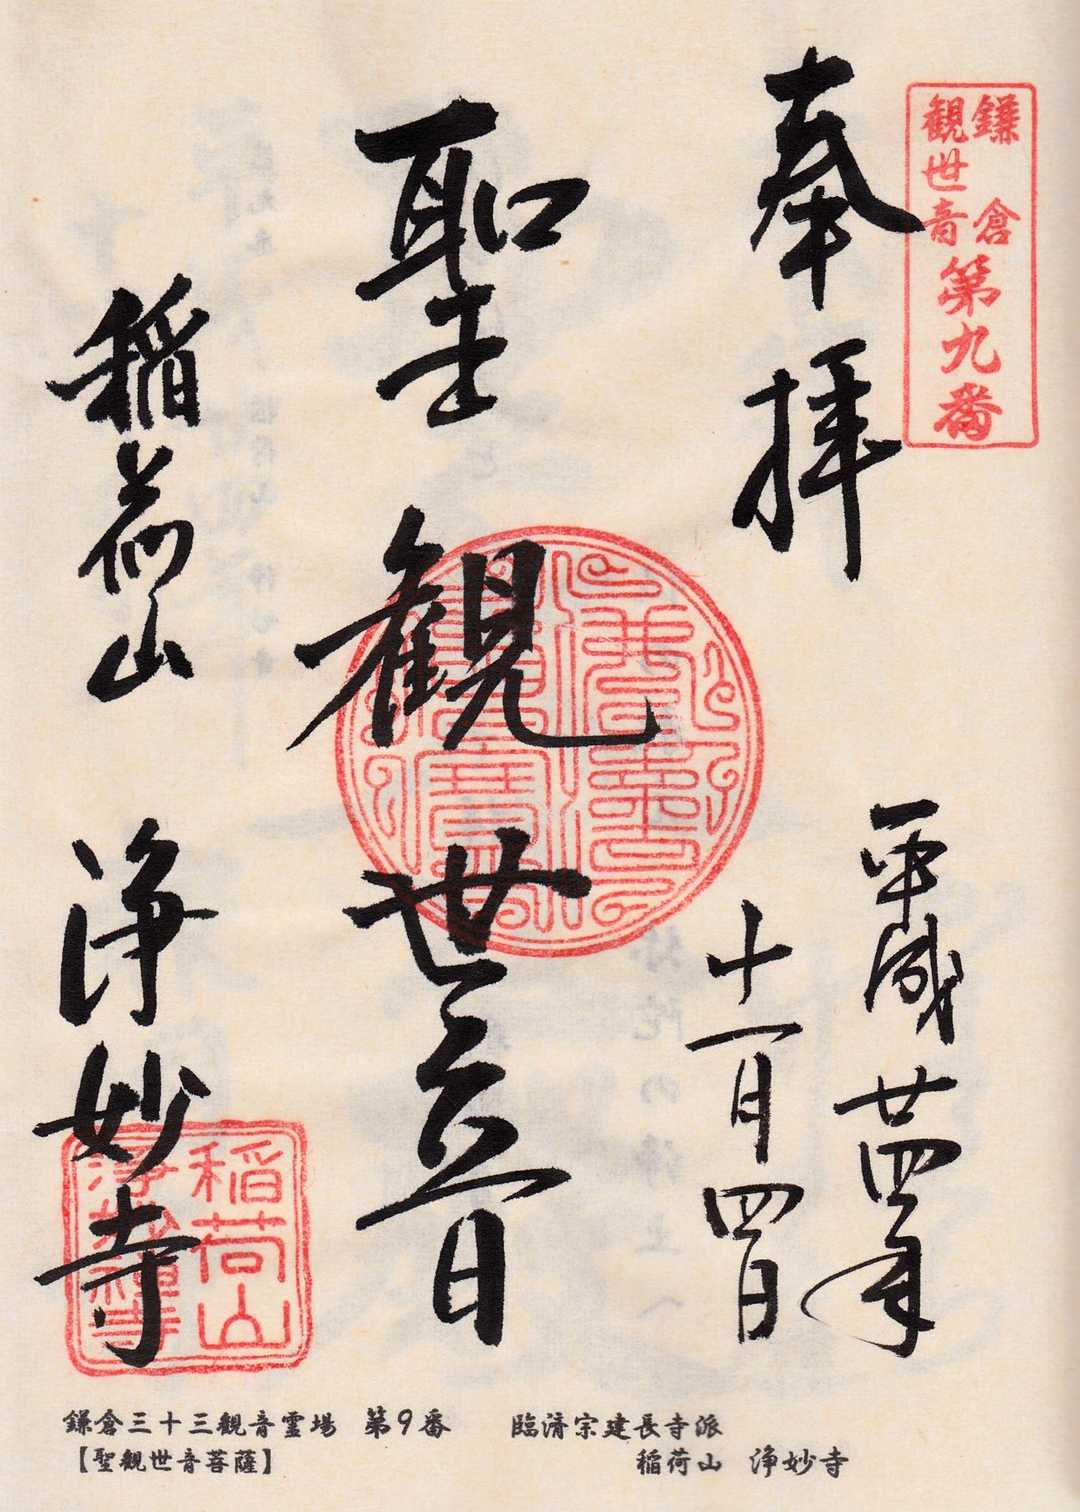 鎌倉
観世音
第九番
奉拝
平成廿四年
十一月四日
聖観世音
稲荷山
浄妙寺
稲荷山
浄妙禅寺
鎌倉三十三観音霊場 第9番
【聖観世音菩薩】
臨済宗建長寺派
稲荷山 浄妙寺